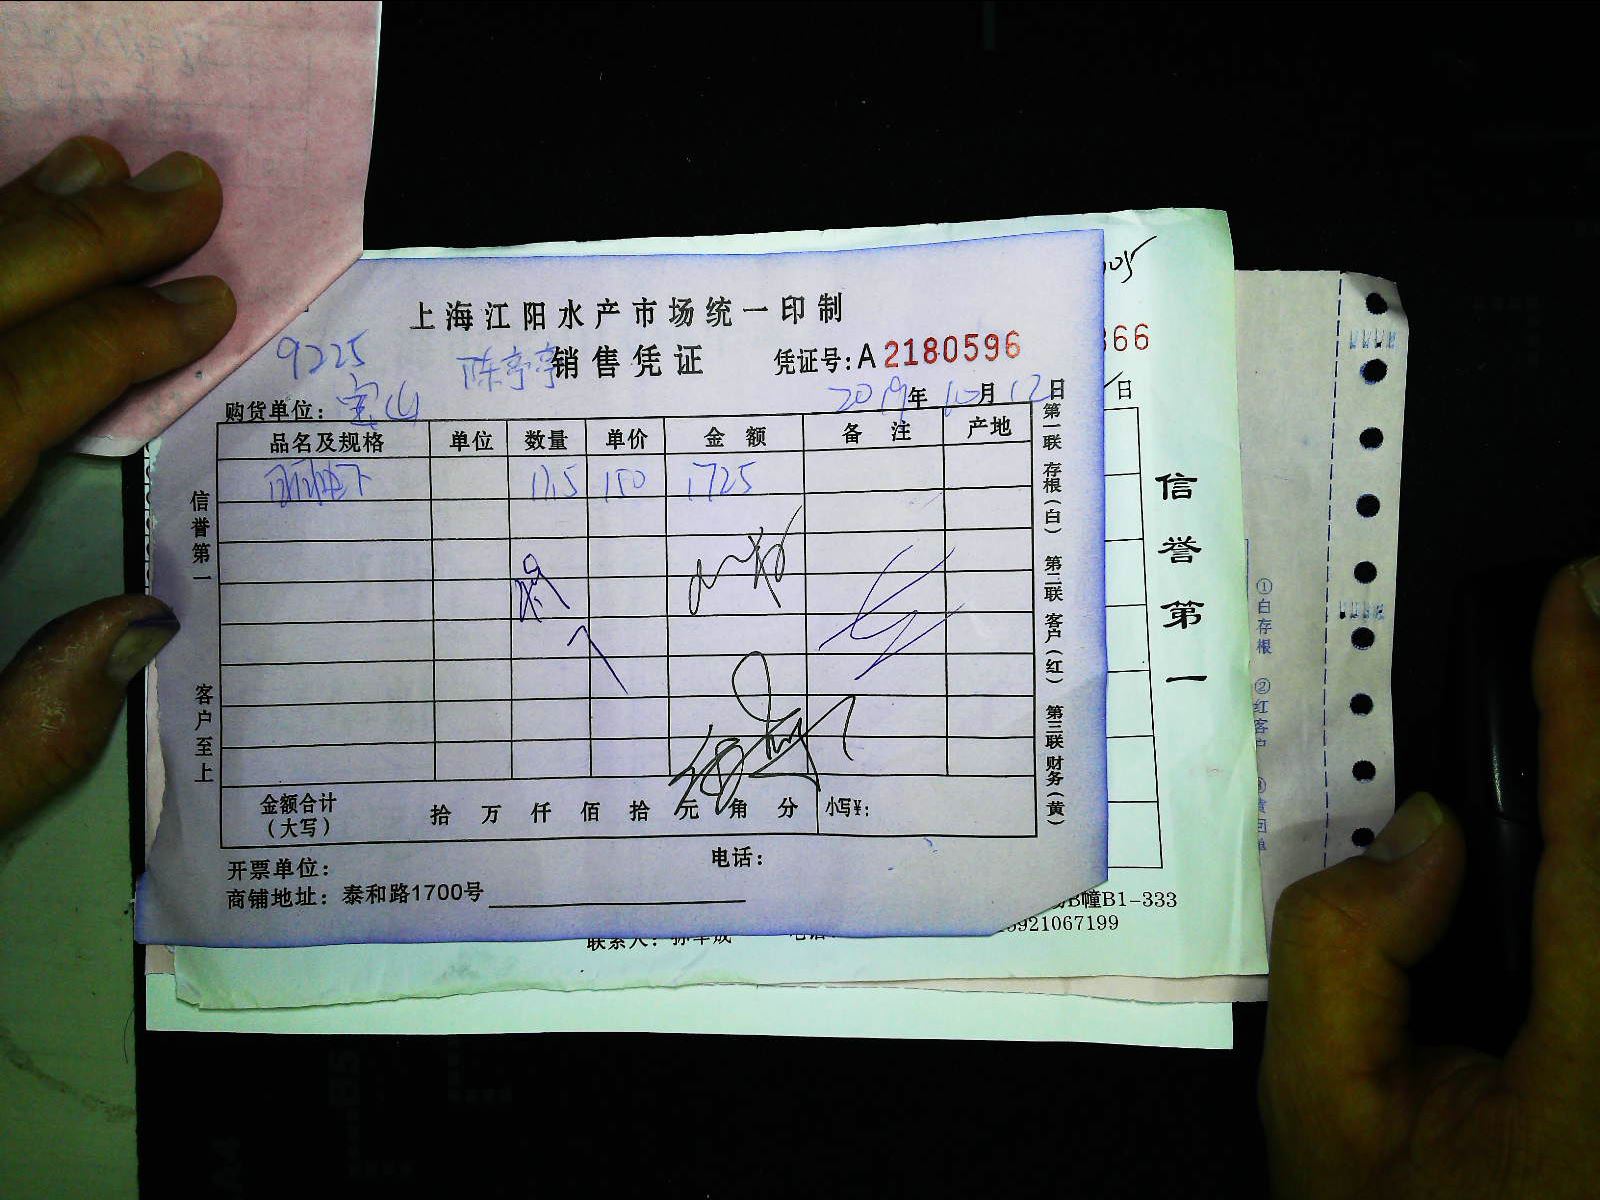 上海江阳水产市场统一印制
9225 陈亭亭 销售凭证 凭证号:A 2180596
购货单位: 宝山 2019年10月12日
品名及规格 单位 数量 单价 金额 备注 产地
11.5 150 1725
金额合计(大写) 拾 万 仟 佰 拾 元 角 分 小写¥:
开票单位: 电话:
商铺地址: 泰和路1700号
信誉第一
客户至上
第一联 存根(白) 第二联 客户(红) 第三联 财务(黄)
05
366
日
信誉第一
B幢B1-333
联系人:
5921067199
①白存根 ②红客户